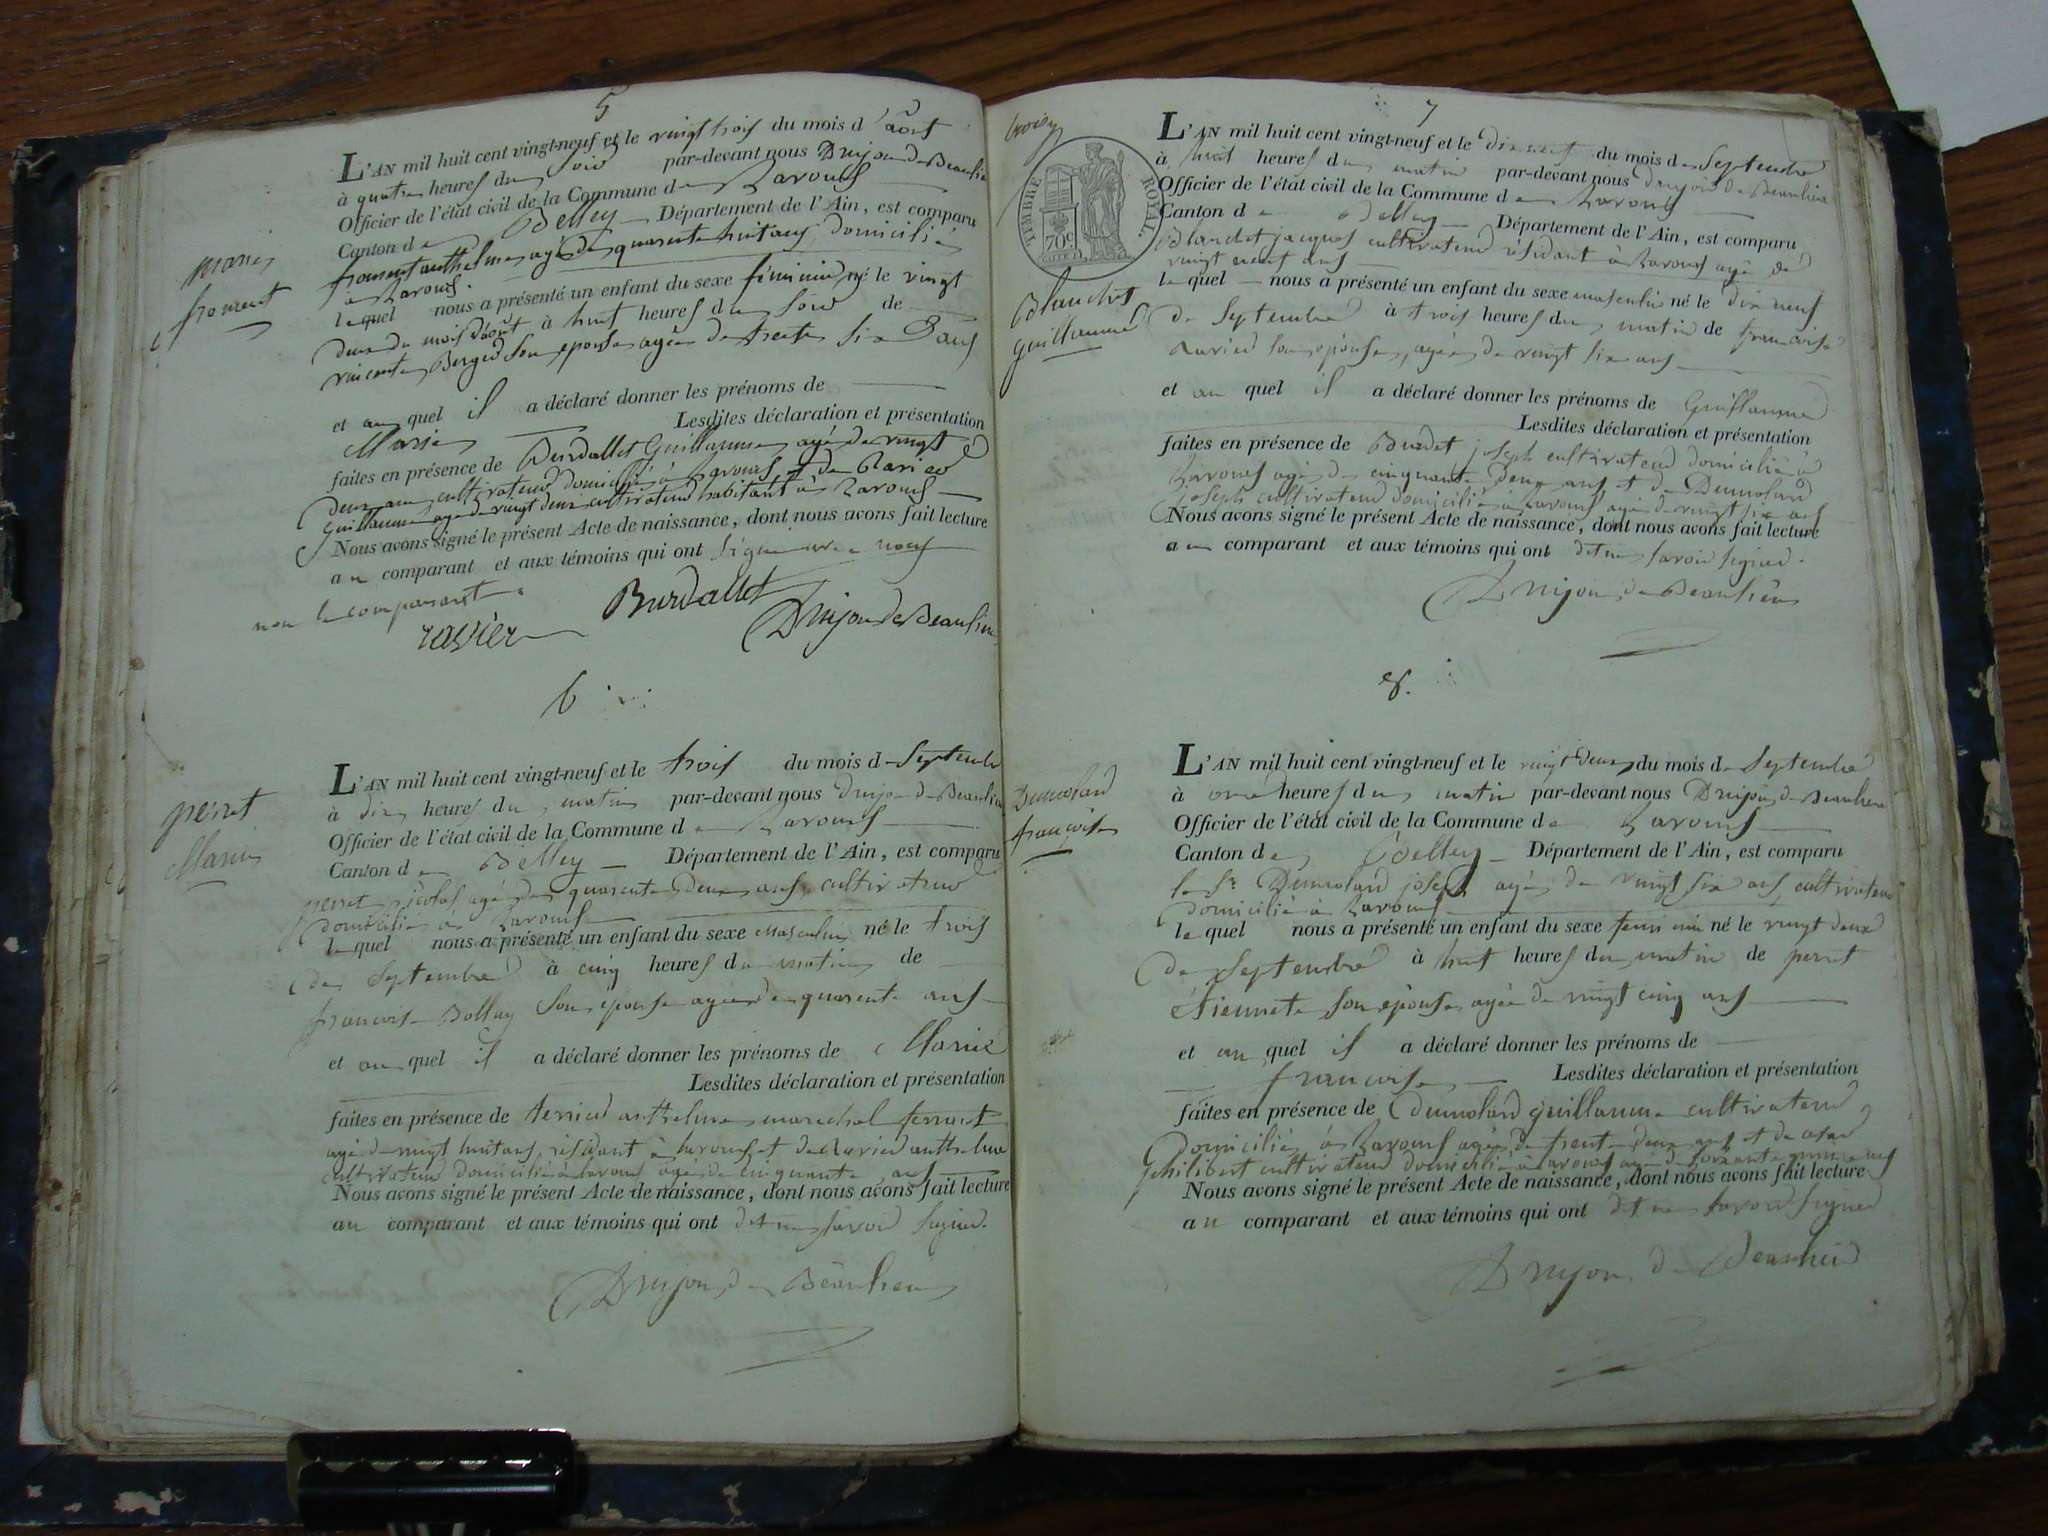 5
L'AN mil huit cent vingt-neuf et le vingt trois du mois d'août
à quatre heures du soir par-devant nous Drujon de Beaulieu
Officier de l'état civil de la Commune de
Canton de Belley Département de l'Ain, est comparu
froment anthelme agé de quarente huit ans, domicilié
à
lequel nous a présenté un enfant du sexe féminin, né le vingt
deux du mois d'août à huit heures du soir de
vincente Berger son epouse agée de trente six ans
et au quel il a déclaré donner les prénoms de
Marie Lesdites déclaration et présentation
faites en présence de Burdallet Guillaume, agé de vingt
deux ans cultivateur domicilié à et de
guillaume agé de vingt deux cultivateur habitant à
Nous avons signé le présent Acte de naissance, dont nous avons fait lecture
au comparant et aux témoins qui ont signé avec nous
non le comparant.
ravier Burdallet
Drujon de Beaulieu
marie
froment
6
L'AN mil huit cent vingt-neuf et le trois du mois de Septembre
à dix heures du matin par-devant nous Drujon de Beaulieu
Officier de l'état civil de la Commune de
Canton de Belley Département de l'Ain, est comparu
perret nicolas agé de quarente deux ans, cultivateur
domicilié à
lequel nous a présenté un enfant du sexe Masculin né le trois
de Septembre à cinq heures du matin de
francoise Bollay son épouse agée de quarente ans
et au quel il a déclaré donner les prénoms de Marie
Lesdites déclaration et présentation
faites en présence de anthelme marechal ferrant
agé de vingt huit ans résidant à et de anthelme
cultivateur domicilié à agé de cinquante ans
Nous avons signé le présent Acte de naissance, dont nous avons fait lecture
au comparant et aux témoins qui ont dit ne savoir signer.
Drujon de Beaulieu
perret
Marie
7
TIMBRE ROYAL.
70c
L'AN mil huit cent vingt-neuf et le dix neuf du mois de Septembre
à huit heures du matin par-devant nous Drujon de Beaulieu
Officier de l'état civil de la Commune de
Canton de Belley Département de l'Ain, est comparu
Blandet jacques cultivateur résidant à agé de
vingt neuf ans
lequel nous a présenté un enfant du sexe masculin né le dix neuf
de Septembre à trois heures du matin de francoise
son épouse, agée de vingt six ans
et au quel il a déclaré donner les prénoms de Guillaume
Lesdites déclaration et présentation
faites en présence de Burdet joseph cultivateur domicilié à
agé de cinquante deux ans et de Dumolard
joseph cultivateur domicilié à agé de vingt six ans
Nous avons signé le présent Acte de naissance, dont nous avons fait lecture
au comparant et aux témoins qui ont dit ne savoir signer.
Drujon de Beaulieu
Blandet
guillaume
8.
L'AN mil huit cent vingt-neuf et le vingt deux du mois de Septembre
à onze heures du matin par-devant nous Drujon de Beaulieu
Officier de l'état civil de la Commune de
Canton de Belley Département de l'Ain, est comparu
le Sr Dumolard joseph agé de vingt six ans cultivateur
domicilié à
lequel nous a présenté un enfant du sexe feminin né le vingt deux
de Septembre à huit heures du matin de perret
Etiennete son épouse agée de vingt cinq ans
et au quel il a déclaré donner les prénoms de
francoise Lesdites déclaration et présentation
faites en présence de Dumolard guillaume cultivateur
domicilié à agé de trente deux ans et de
philibert cultivateur domicilié à agé de
Nous avons signé le présent Acte de naissance, dont nous avons fait lecture
au comparant et aux témoins qui ont dit ne savoir signer
Drujon de Beaulieu
Dumolard
francoise